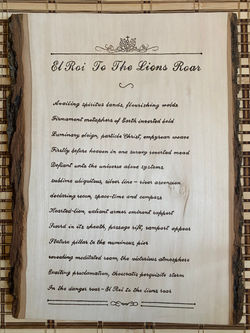 El Roi To The Lions Roar
Awaiting spiritus lands, flourishing worlds
Firmament metaphors of Earth inverted bold
Luminary align, particle Christ, empyrean weave
Firstly before heaven in one swamy inverted
Defiant unto the universe above systems
sublime ubiquitous, silver line - river ascension
declaring room, space-time and compass
Hearted-lion, valiant armors eminent support
Sword in its sheath, passage rift, rampart appear
Stature pillar to the numinous, pier
revealing meditated room, the victorious atmosphere
Exciting proclamation, theocratic perquisite storm
In the danger roar - El Roi to the lions roar